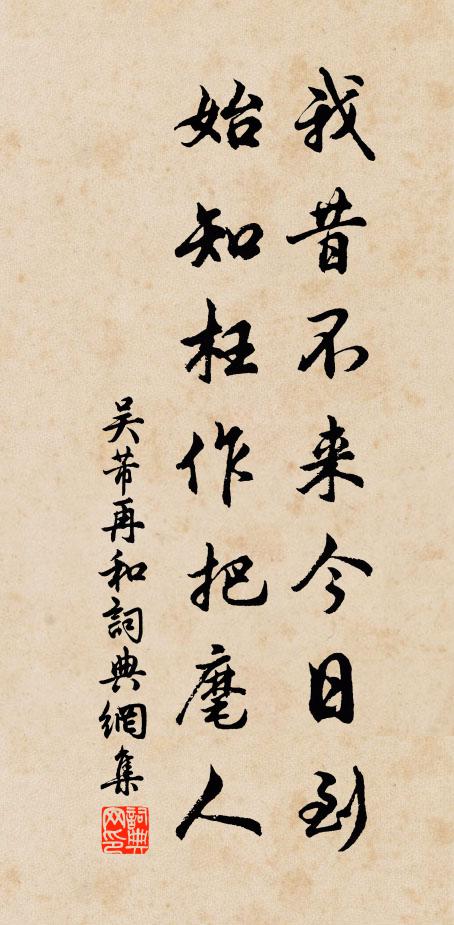 我昔不来今日到
始知枉作把麾人
吴芾再和詞典網集
詞典网印